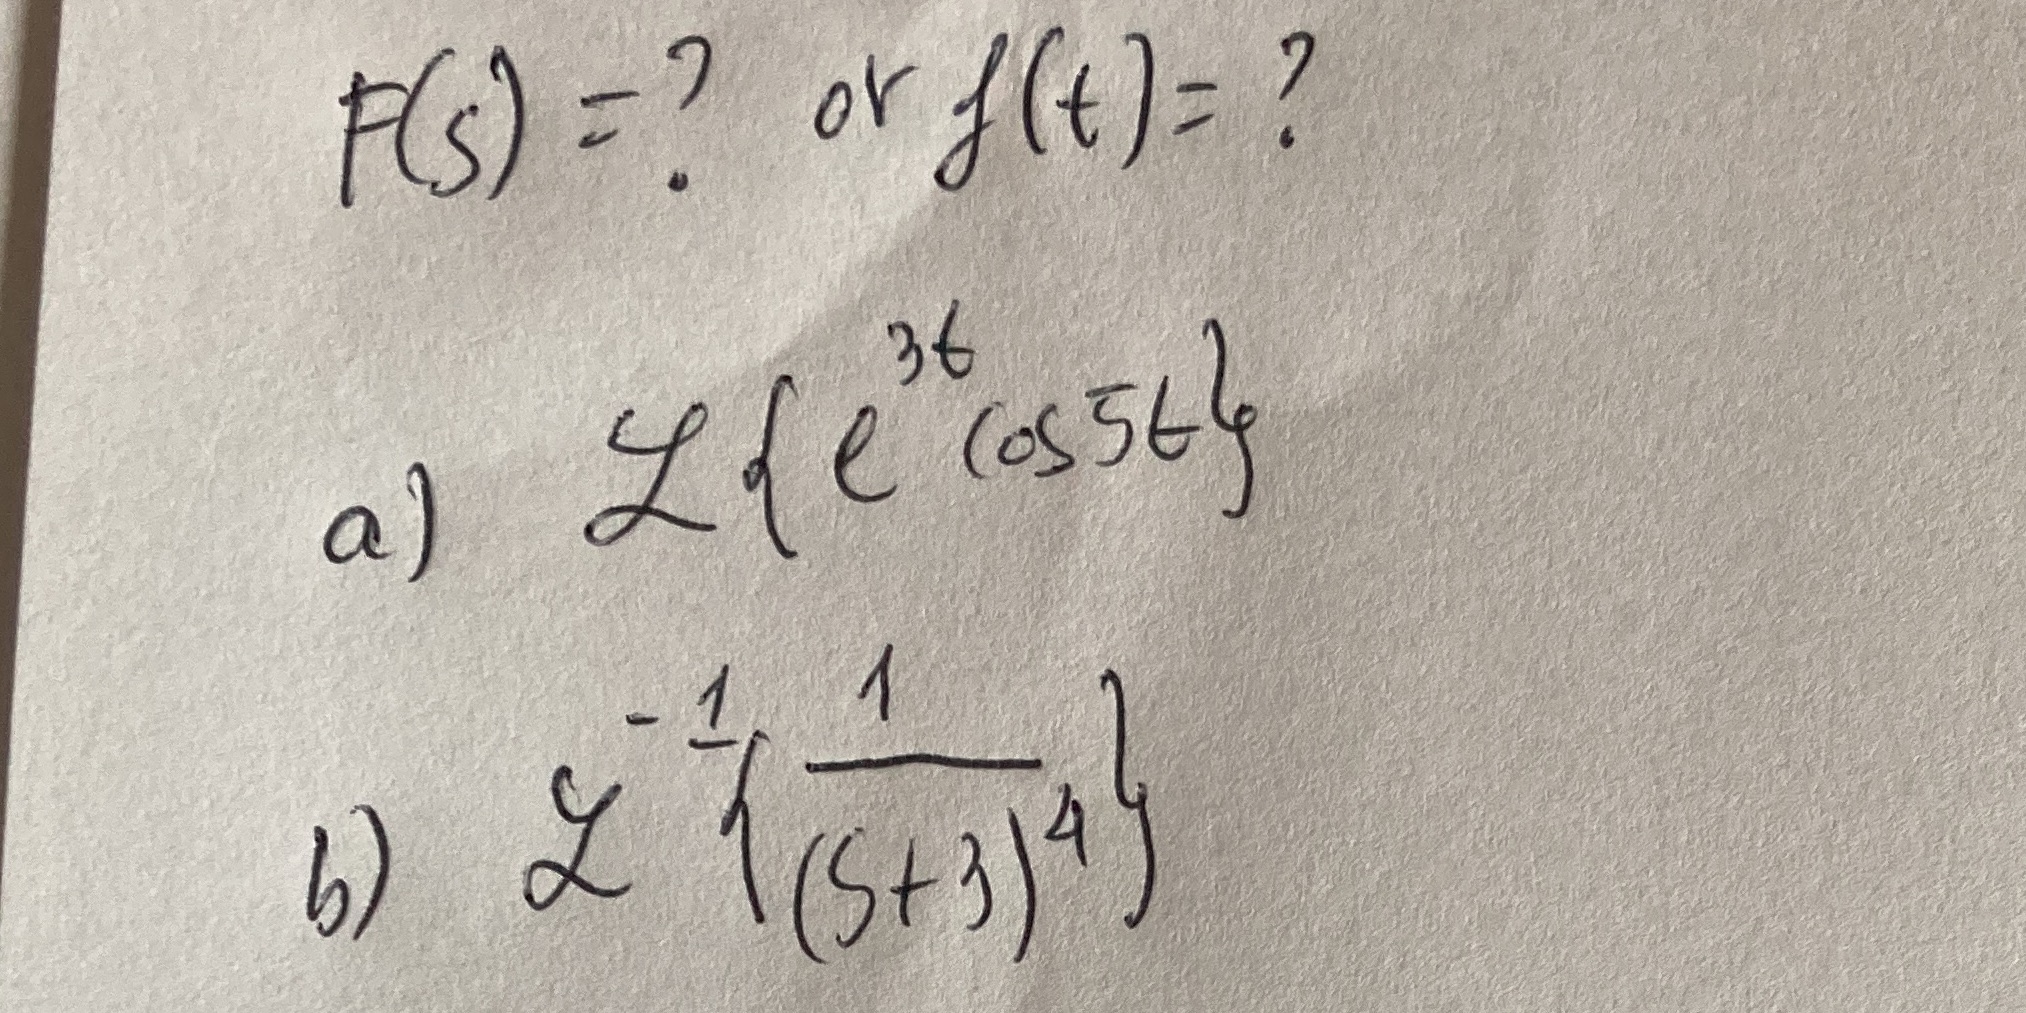 F(s) = ? or f(t) = ?
a) ℒ{e^{3t} cos5t}
b) ℒ^{-1}{1/(s+3)^4}